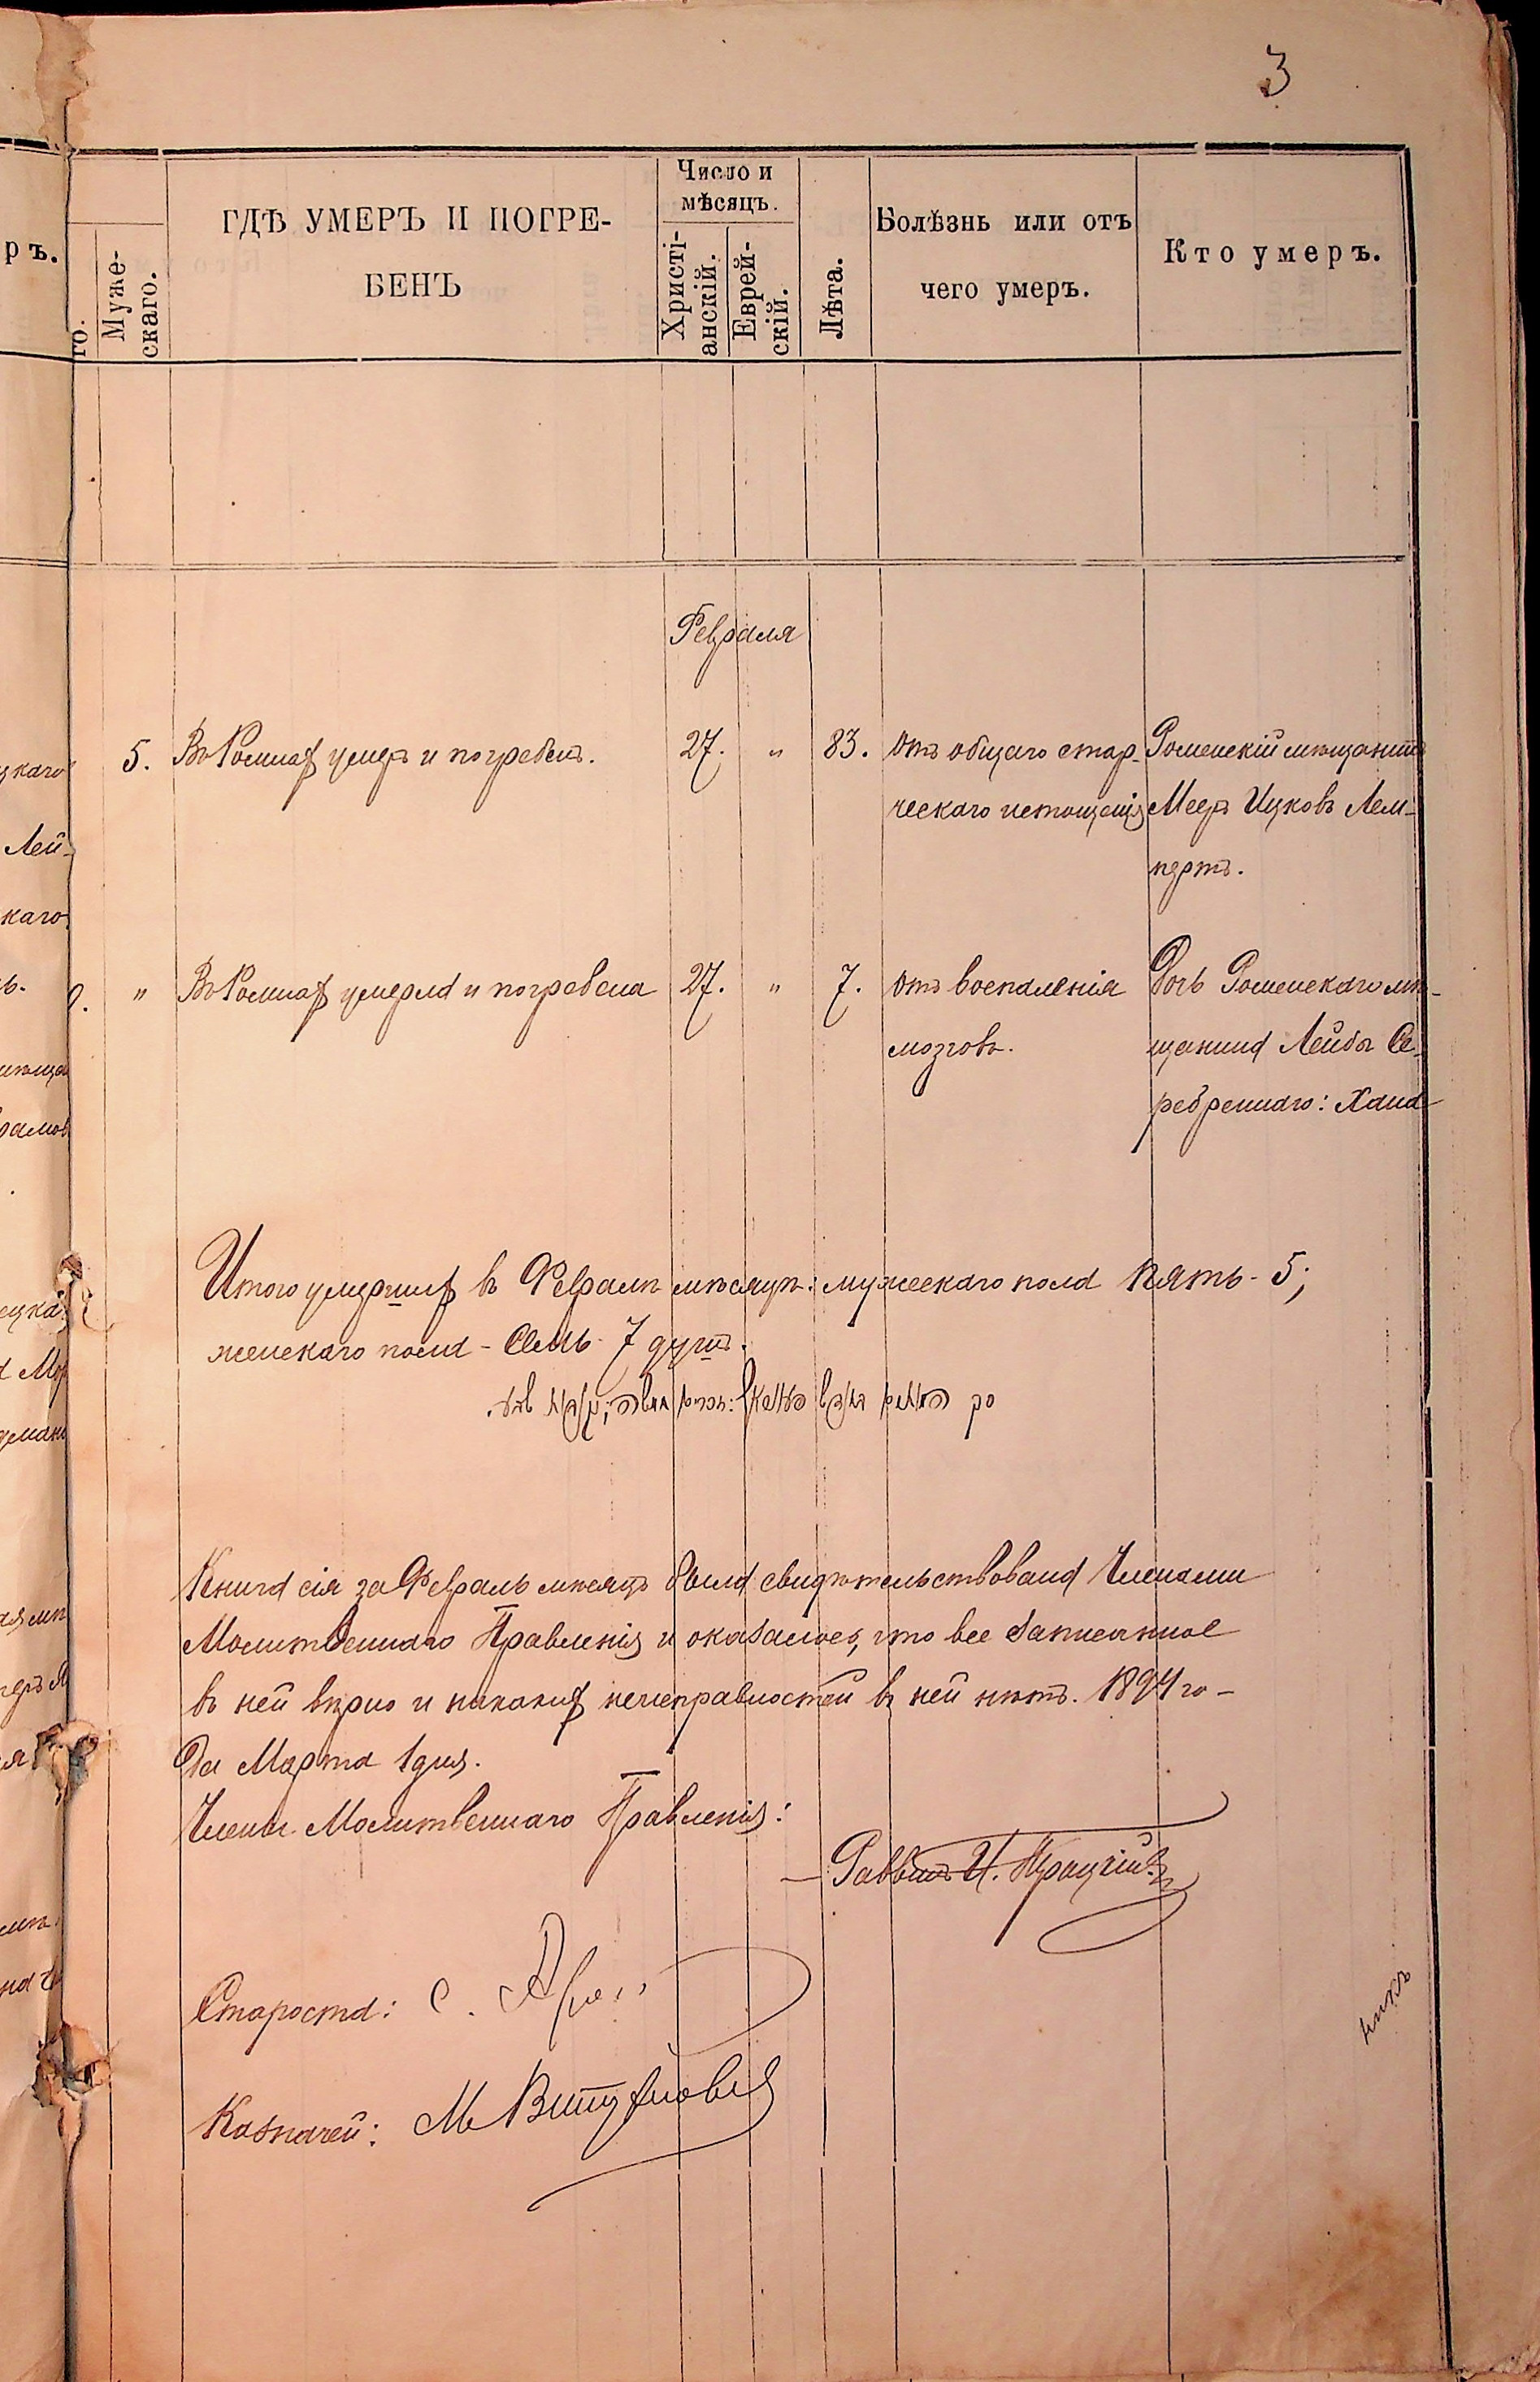 3
ръ.
го.
Муже-
скаго.
ГДѢ УМЕРЪ И ПОГРЕ-
БЕНЪ
Число и
мѣсяцъ.
Христі-
анскій.
Еврей-
скій.
Лѣта.
Болѣзнь или отъ
чего умеръ.
Кто умеръ.
Февраля
5. Въ Ромнах умеръ и погребенъ. 27. " 83. Отъ общаго стар- Роменскій мѣщанинъ
ческаго истощенія Мееръ Ицковъ Лем-
пертъ.
" Въ Ромнах умерла и погребена 27. " 7. Отъ воспаленія Дочь Роменскаго мѣ-
мозговъ. щанина Лейбы Се-
ребреннаго: Хана
Итого умерших въ Февралѣ мѣсяцѣ: мужескаго пола пять - 5;
женскаго пола - Семь - 7 душъ.
Книга сія за Февраль мѣсяцъ была свидѣтельствована Членами
Молитвеннаго Правленія и оказалось, что все записанное
въ ней вѣрно и никаких неисправностей въ ней нѣтъ. 1894 го-
да Марта 1 дня.
Члены Молитвеннаго Правленія:
Раввинъ И.
Староста: С.
Казначей: М